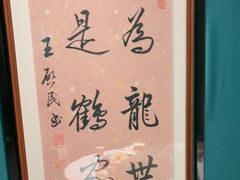 為龍世
是鶴家
王啟民书